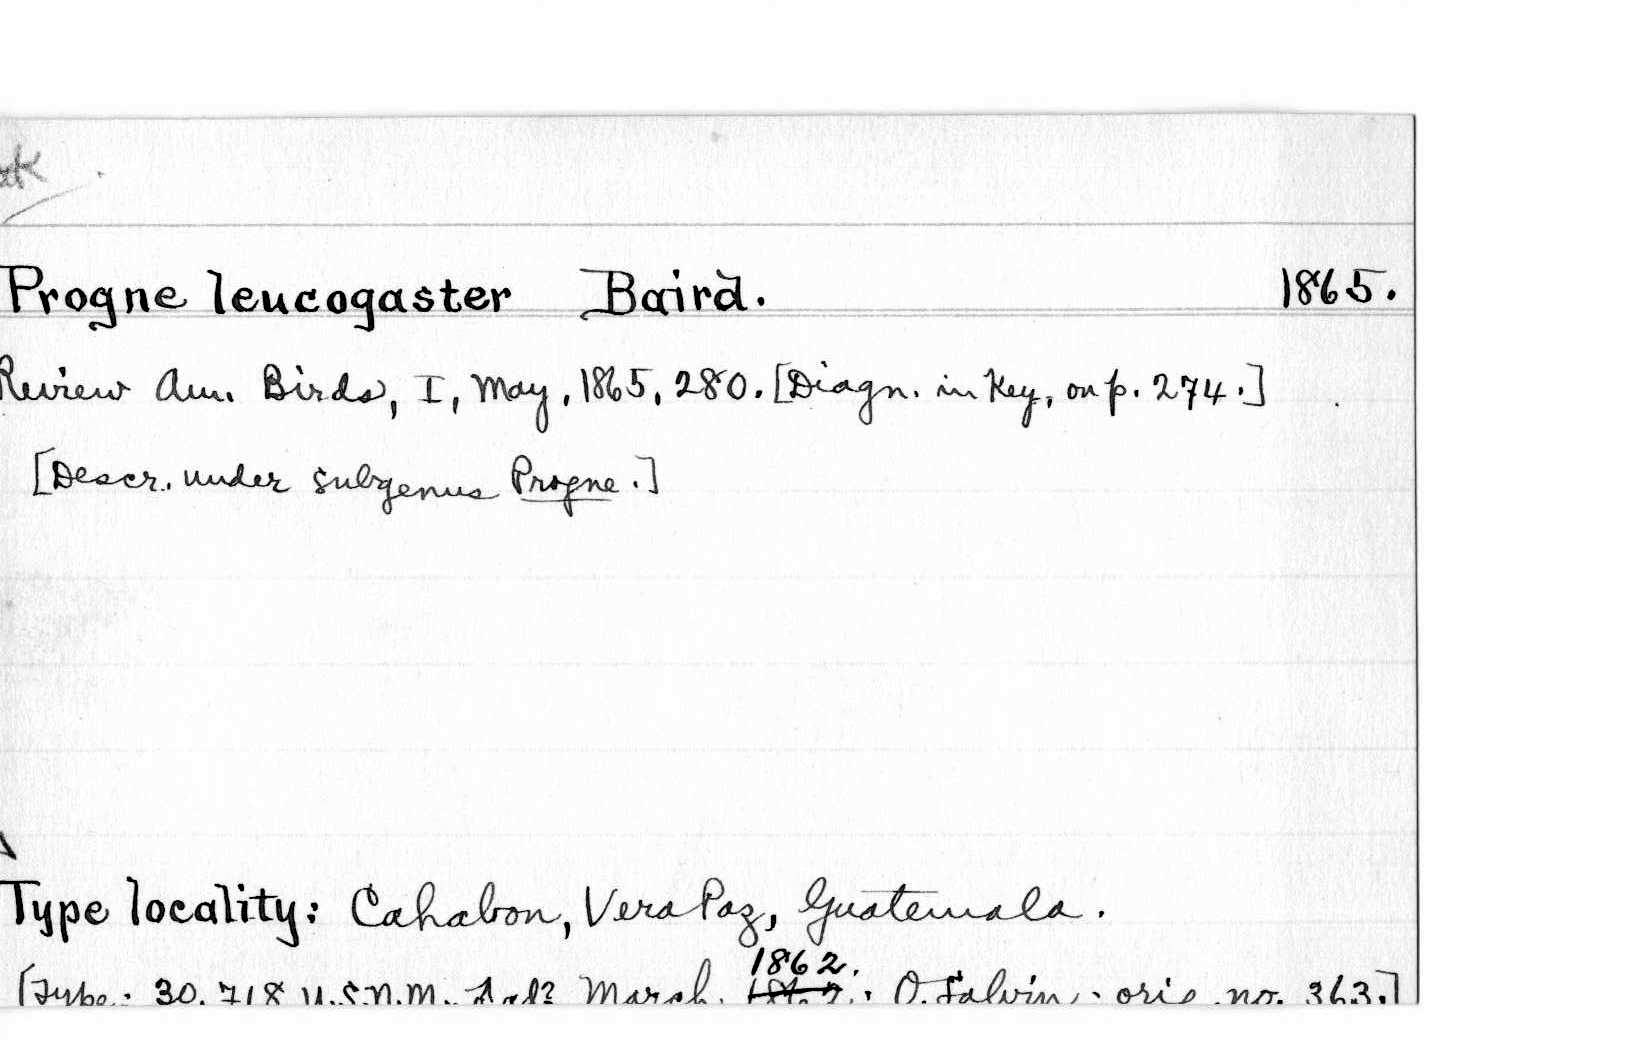 Progne leucogaster Baird. 1865.
Review Am. Birds, I, May, 1865, 280. [Diagn. in Key, on p. 274.]
[Descr. under subgenus Progne.]
Type locality: Cahabon, Vera Paz, Guatemala.
1862.
[Type: 30,718 U.S.N.M. Ad? March. O. Salvin; orig. no. 363.]